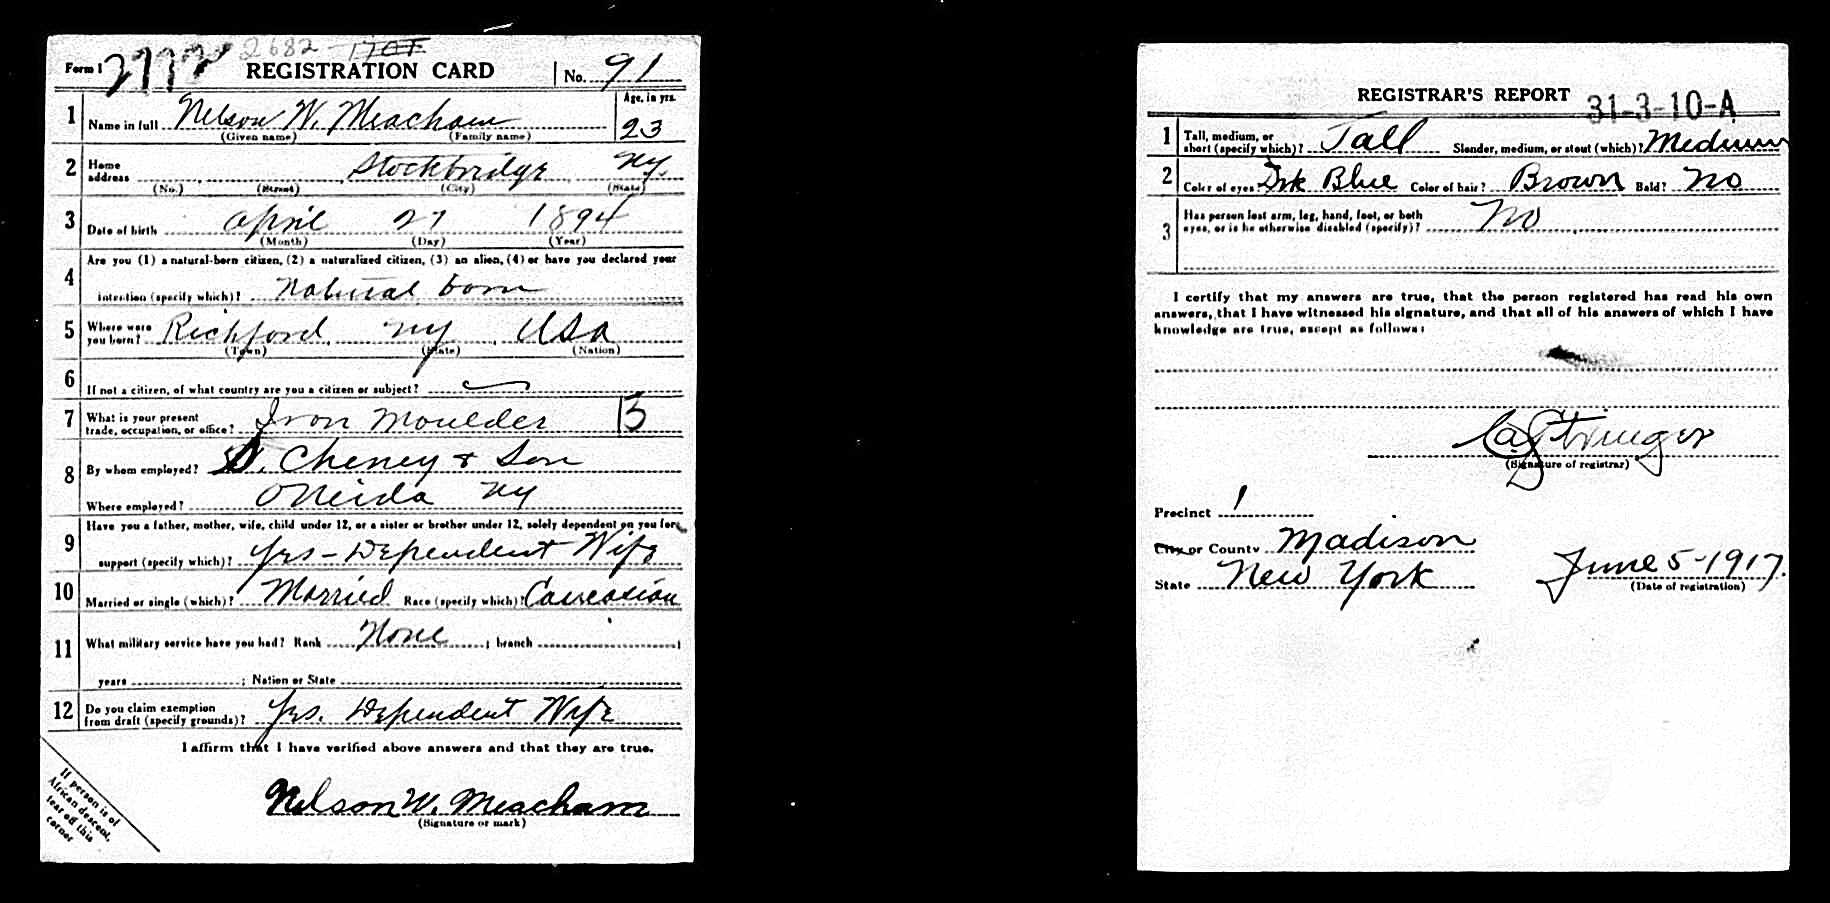 Form 1 2772 2682 1701
REGISTRATION CARD No. 91
1 Name in full Nelson W. Meacham Age, in yrs. 23
(Given name) (Family name)
2 Home address Stockbridge NY.
(No.) (Street) (City) (State)
3 Date of birth April 27 1894
(Month) (Day) (Year)
4 Are you (1) a natural-born citizen, (2) a naturalized citizen, (3) an alien, (4) or have you declared your
intention (specify which)? Natural born
5 Where were you born? Richford NY USA
(Town) (State) (Nation)
6 If not a citizen, of what country are you a citizen or subject?
7 What is your present trade, occupation, or office? Iron Moulder 13
8 By whom employed? S. Cheney & Son
Where employed? Oneida NY
9 Have you a father, mother, wife, child under 12, or a sister or brother under 12, solely dependent on you for
support (specify which)? Yes - Dependent Wife
10 Married or single (which)? Married Race (specify which)? Caucasian
11 What military service have you had? Rank None ; branch ;
years ; Nation or State
12 Do you claim exemption from draft (specify grounds)? Yes. Dependent Wife
I affirm that I have verified above answers and that they are true.
Nelson W. Meacham
(Signature or mark)
If person is of
African descent,
tear off this
corner
REGISTRAR'S REPORT 31-3-10-A
1 Tall, medium, or short (specify which)? Tall Slender, medium, or stout (which)? Medium
2 Color of eyes? Drk Blue Color of hair? Brown Bald? No
3 Has person lost arm, leg, hand, foot, or both eyes, or is he otherwise disabled (specify)? No
I certify that my answers are true, that the person registered has read his own
answers, that I have witnessed his signature, and that all of his answers of which I have
knowledge are true, except as follows:
Stringer
(Signature of registrar)
Precinct 1
City or County Madison
State New York June 5-1917.
(Date of registration)